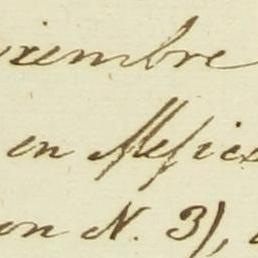 viembre
en Mefico
on N. 3),